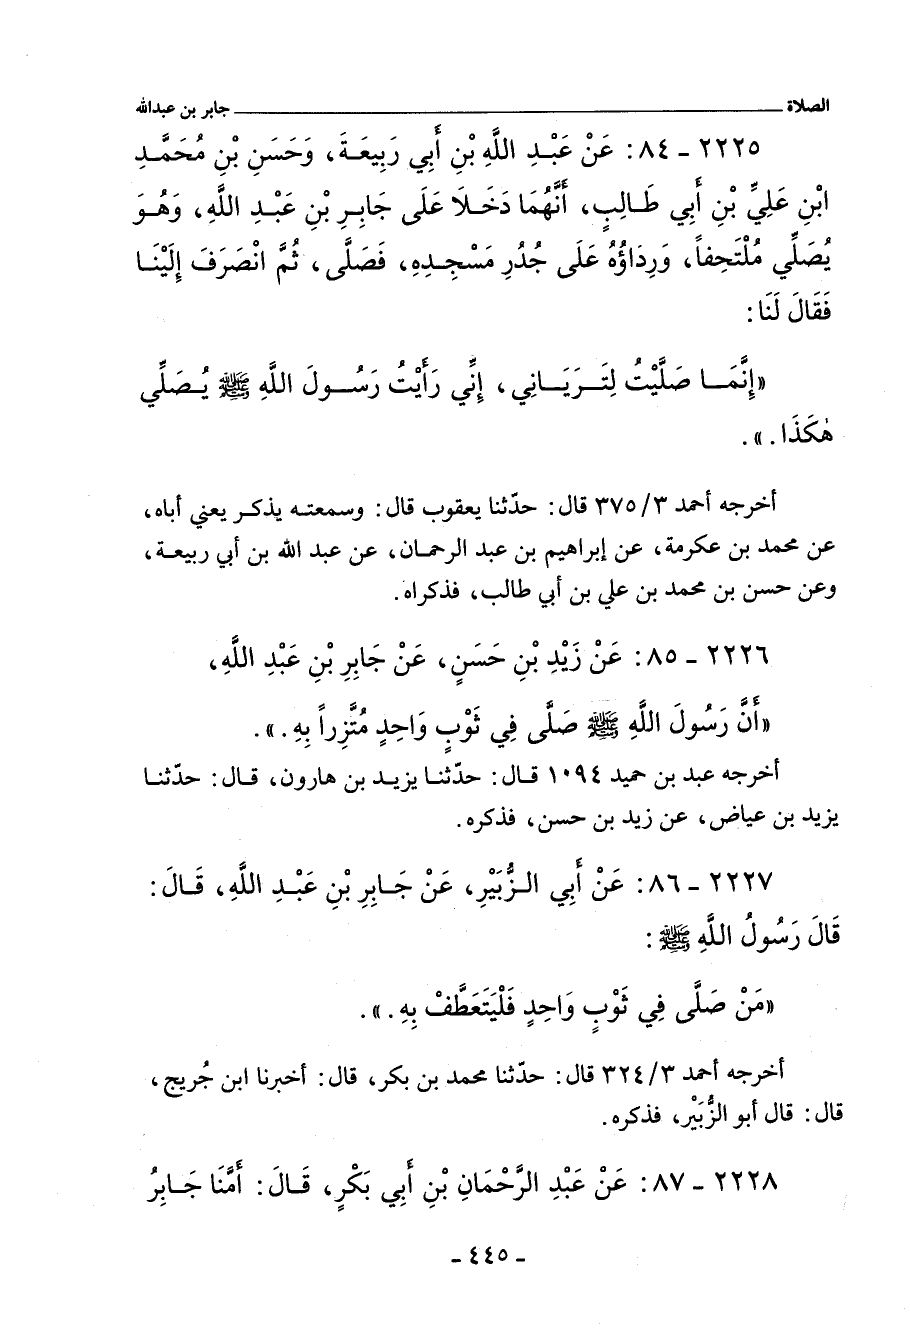 الصلاة ـــــــــــــــــــــــ جابر بن عبدالله
٢٢٢٥ ـ ٨٤: عَنْ عَبْدِ اللَّهِ بْنِ أَبِي رَبِيعَةَ، وَحَسَنِ بْنِ مُحَمَّدِ
ابْنِ عَلِيِّ بْنِ أَبِي طَالِبٍ، أَنَّهُمَا دَخَلَا عَلَى جَابِرِ بْنِ عَبْدِ اللَّهِ، وَهُوَ
يُصَلِّي مُلْتَحِفاً، وَرِدَاؤُهُ عَلَى جُدُرِ مَسْجِدِهِ، فَصَلَّى، ثُمَّ انْصَرَفَ إِلَيْنَا
فَقَالَ لَنَا:
«إِنَّمَا صَلَّيْتُ لِتَرَيَانِي، إِنِّي رَأَيْتُ رَسُولَ اللَّهِ ﷺ يُصَلِّي
هٰكَذَا.».
أخرجه أحمد ٣/٣٧٥ قال: حدّثنا يعقوب قال: وسمعته يذكر يعني أباه،
عن محمد بن عكرمة، عن إبراهيم بن عبد الرحمان، عن عبد الله بن أبي ربيعة،
وعن حسن بن محمد بن علي بن أبي طالب، فذكراه.
٢٢٢٦ ـ ٨٥: عَنْ زَيْدِ بْنِ حَسَنٍ، عَنْ جَابِرِ بْنِ عَبْدِ اللَّهِ،
«أَنَّ رَسُولَ اللَّهِ ﷺ صَلَّى فِي ثَوْبٍ وَاحِدٍ مُتَّزِراً بِهِ.».
أخرجه عبد بن حميد ١٠٩٤ قال: حدّثنا يزيد بن هارون، قال: حدّثنا
يزيد بن عياض، عن زيد بن حسن، فذكره.
٢٢٢٧ ـ ٨٦: عَنْ أَبِي الزُّبَيْرِ، عَنْ جَابِرِ بْنِ عَبْدِ اللَّهِ، قَالَ:
قَالَ رَسُولُ اللَّهِ ﷺ:
«مَنْ صَلَّى فِي ثَوْبٍ وَاحِدٍ فَلْيَتَعَطَّفْ بِهِ.».
أخرجه أحمد ٣/٣٢٤ قال: حدّثنا محمد بن بكر، قال: أخبرنا ابن جُريج،
قال: قال أبو الزُّبَيْر، فذكره.
٢٢٢٨ ـ ٨٧: عَنْ عَبْدِ الرَّحْمَانِ بْنِ أَبِي بَكْرٍ، قَالَ: أَمَّنَا جَابِرُ
ـ ٤٤٥ ـ